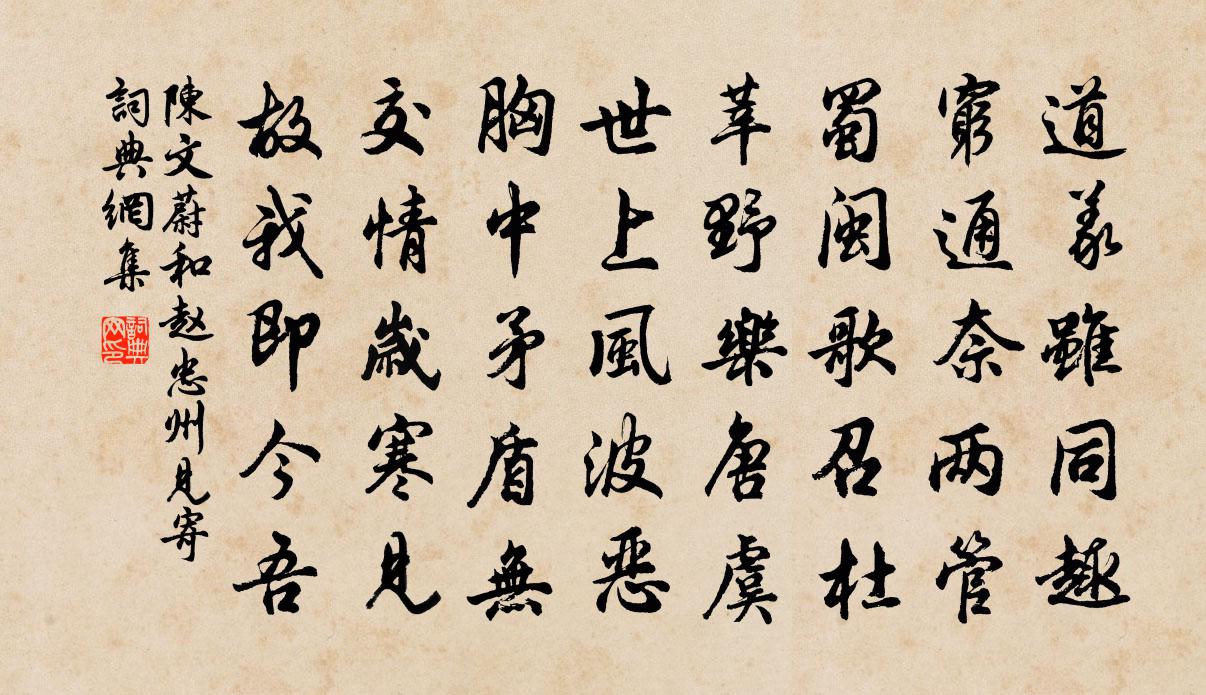 道義雖同趣
窮通奈两管
蜀閩歌召杜
莘野樂唐虞
世上風波惡
胸中矛盾無
交情歲寒見
故我即今吾
陳文蔚和赵忠州見寄
詞典網集
詞典网印